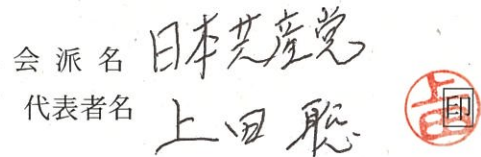 会派名 日本共産党
代表者名 上田 聡 印
上田